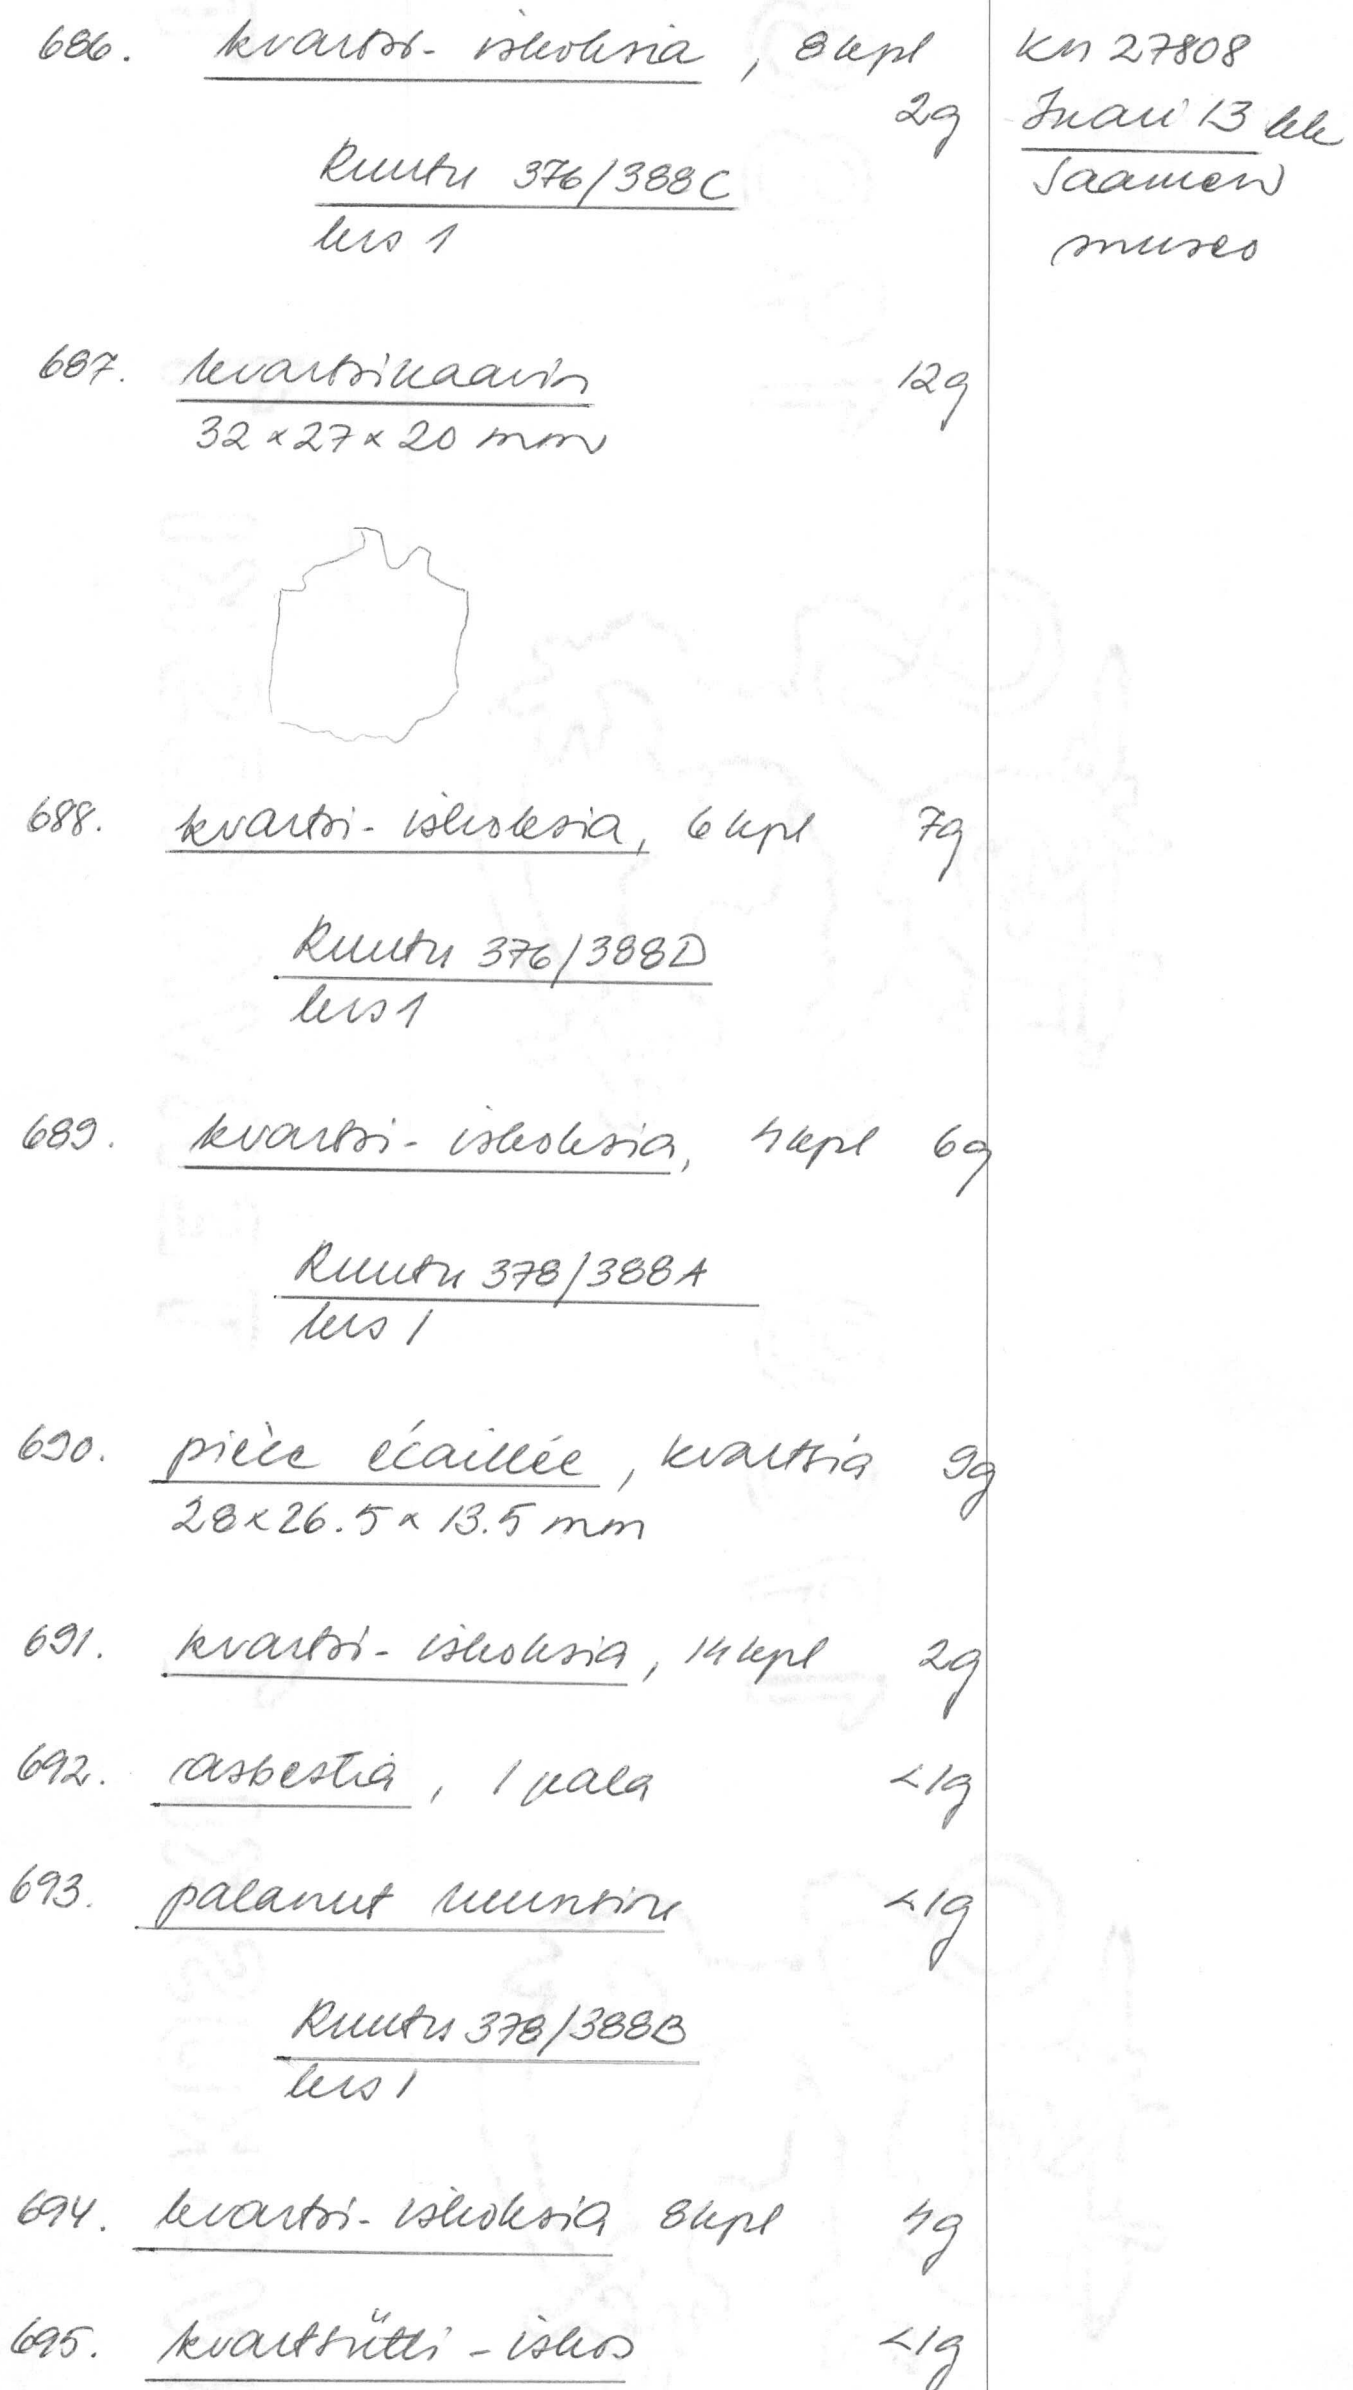 686. kvartsi-iskoksia, 8 kpl
2g
KM 27808
Inari 13 kk
Saamen
museo
Ruutu 376/388C
krs 1
687. kvartsikaavin 12g
32 x 27 x 20 mm
688. kvartsi-iskoksia, 6 kpl 7g
Ruutu 376/388D
krs 1
689. kvartsi-iskoksia, 4 kpl 6g
Ruutu 378/388A
krs 1
690. pièce écaillée, kvartsia 9g
28 x 26.5 x 13.5 mm
691. kvartsi-iskoksia, 14 kpl 2g
692. asbestia, 1 pala <1g
693. palanut luunsiru <1g
Ruutu 378/388B
krs 1
694. kvartsi-iskoksia 8 kpl 4g
695. kvartsiitti-iskos <1g